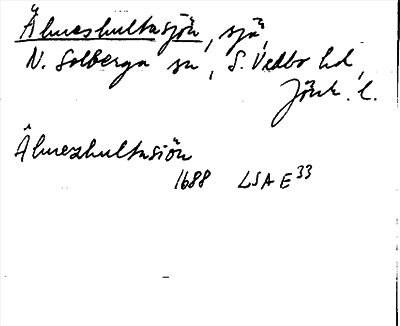 Älmeshultasjön, sjö,
N. Solberga sn, S. Vedbo hd,
Jönk. l.
Älmezhultasiön
1688 LSA E33